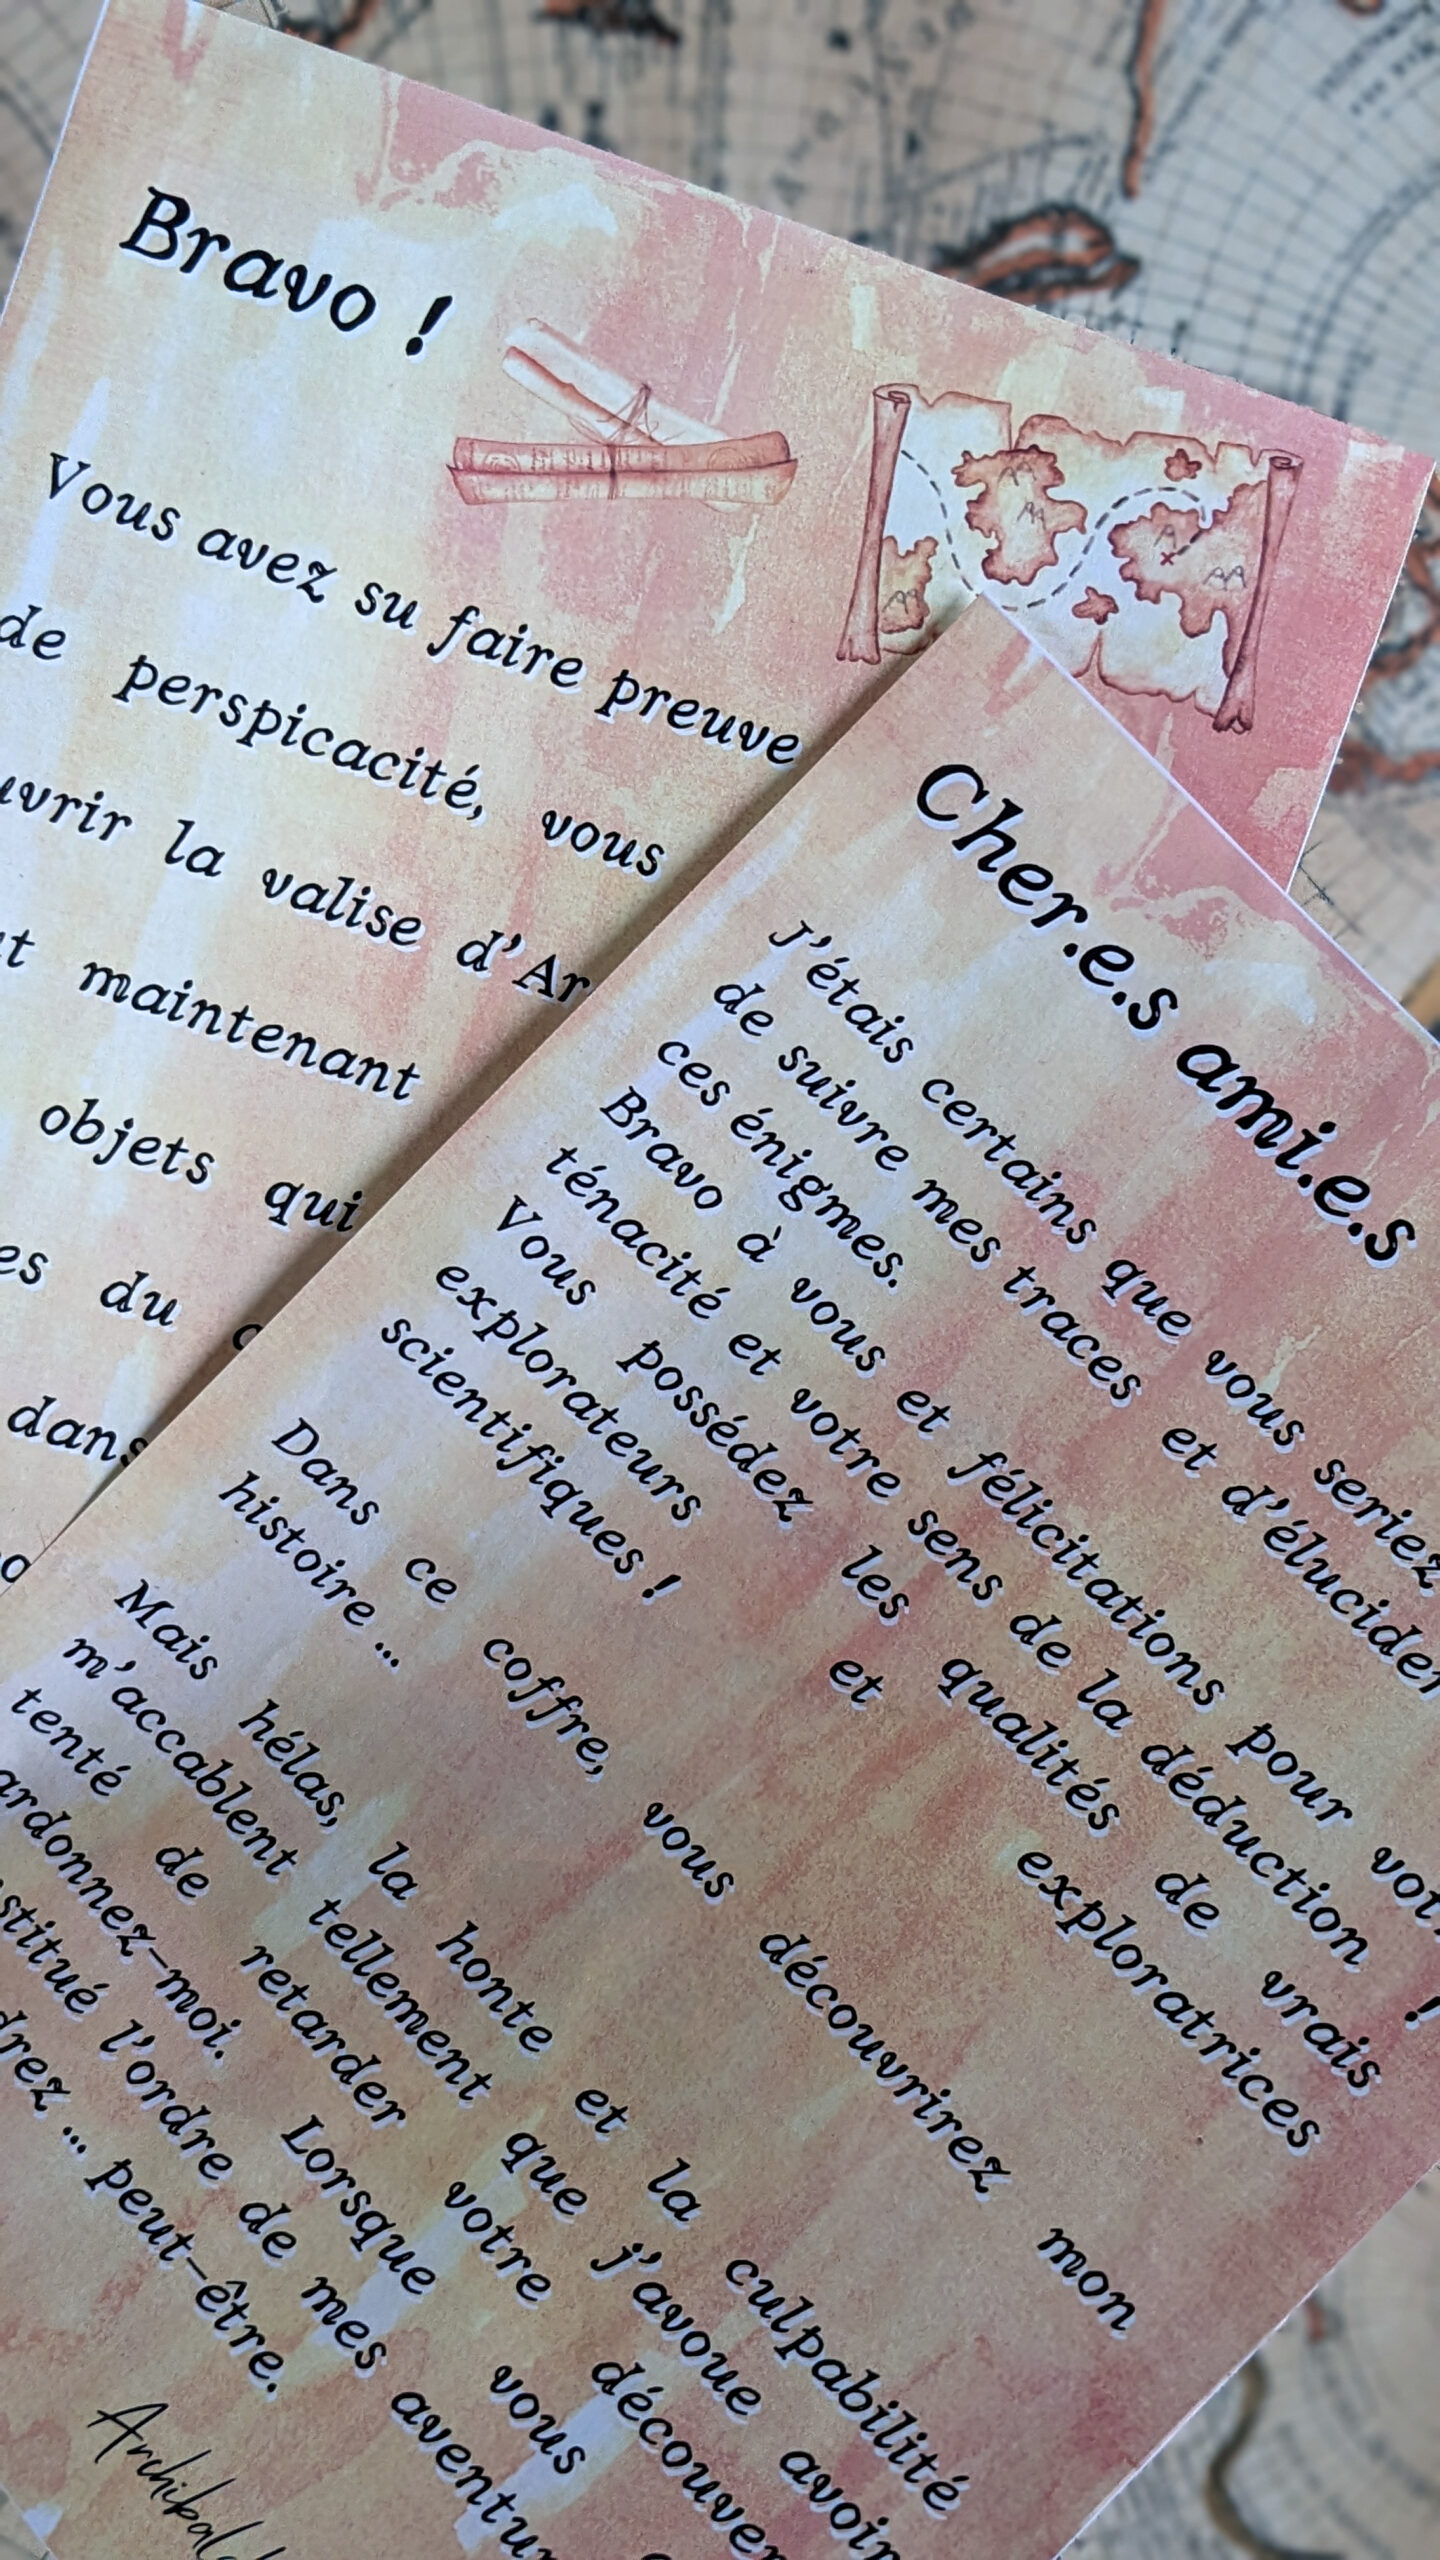 Bravo !
Vous avez su faire preuve
de perspicacité, vous
la valise
maintenant
objets qui
du
dans
Cher.e.s ami.e.s
J'étais certains que vous seriez
de suivre mes traces et d'élucider
ces énigmes.
Bravo à vous et félicitations pour
ténacité et votre sens de la déduction !
Vous possédez les qualités de vrais
explorateurs et exploratrices
scientifiques !
Dans ce coffre, vous découvrirez mon
histoire ...
Mais hélas, la honte et la culpabilité
m'accablent tellement que j'avoue avoir
tenté de retarder votre
Lorsque vous
l'ordre de mes
... peut-être.
Archibald